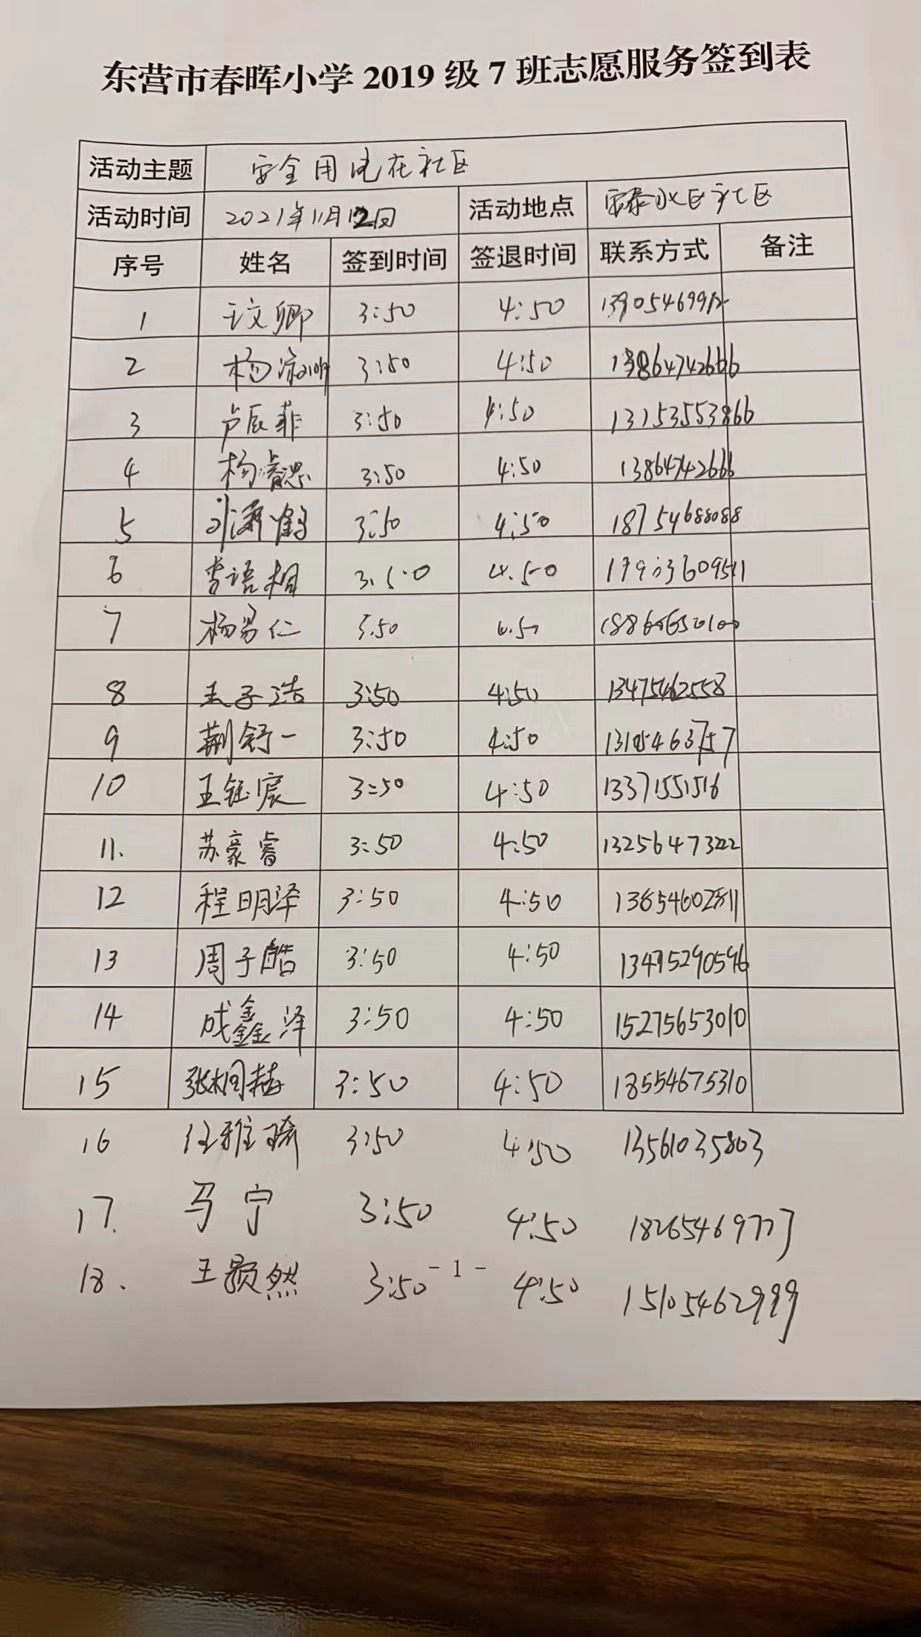 东营市春晖小学2019级7班志愿服务签到表
活动主题 安全用电在社区
活动时间 2021年11月12日 活动地点 水区社区
序号 姓名 签到时间 签退时间 联系方式 备注
1 王文卿 3:50 4:50
2 杨 3:50 4:50 13864742666
3 卢辰菲 3:50 4:50 13153553866
4 杨睿思 3:50 4:50 13864742666
5 刘潇鹤 3:50 4:50 18754688088
6 李语桐 3:50 4.50
7 杨易仁 3.50 4.50
8 王子浩 3:50 4:50 13475462558
9 荆舒一 3:50 4:50 13105463757
10 王钰宸 3:50 4:50 13371551516
11. 苏豪睿 3:50 4:50 13256473222
12 程明泽 3:50 4:50 13654602811
13 周子皓 3:50 4:50 13495290596
14 成鑫泽 3:50 4:50 15275653010
15 张桐赫 3:50 4:50 18554675310
16 任雅琦 3:50 4:50 13561035803
17. 马宁 3:50 4:50 18265469777
18. 王颢然 3:50 4:50 15105462999
- 1 -